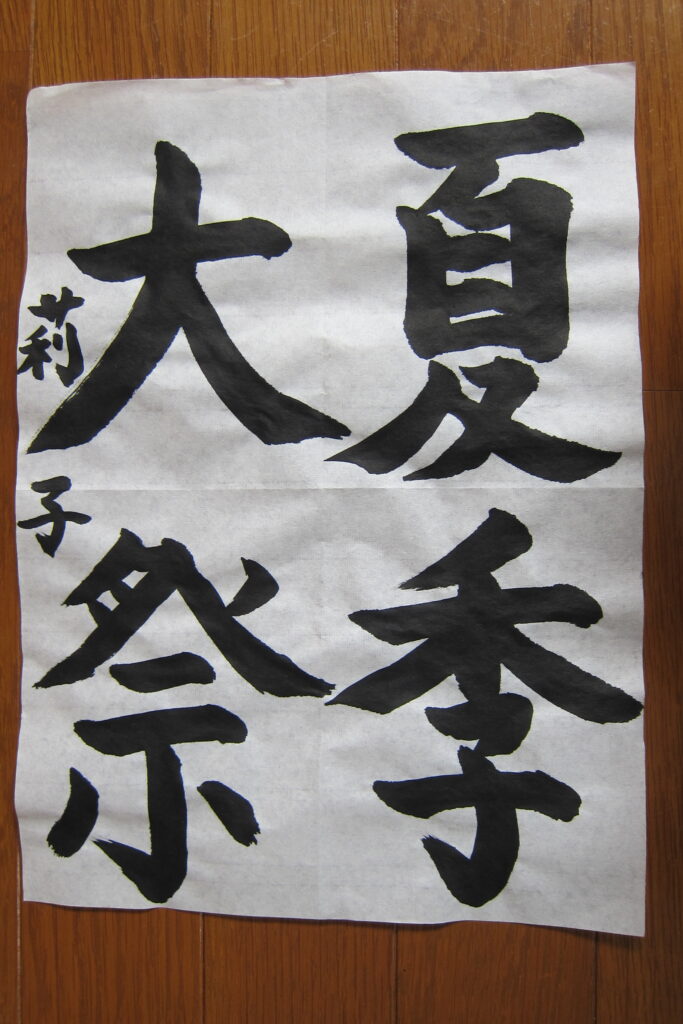 夏季
大祭
莉子